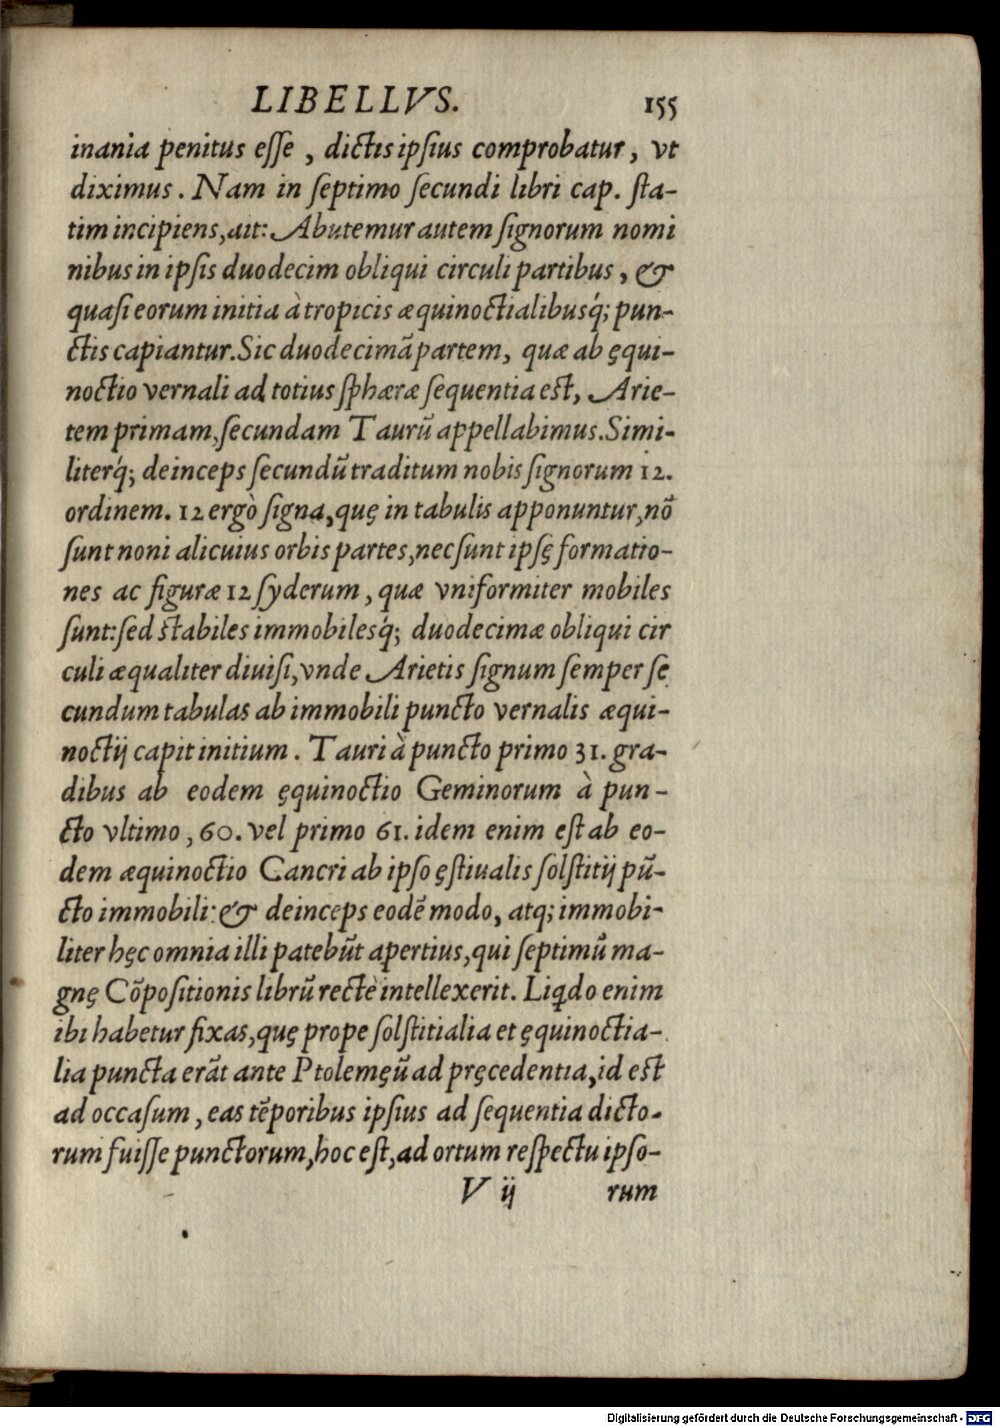 LIBELLVS. 155
inania penitus eſſe, dictis ipſius comprobatur, vt
diximus. Nam in ſeptimo ſecundi libri cap. ſta-
tim incipiens, ait: Abutemur autem ſignorum nomi
nibus in ipſis duodecim obliqui circuli partibus, &
quaſi eorum initia à tropicis æquinoctialibusq́; pun-
ctis capiantur. Sic duodecimã partem, quæ ab ęqui-
noctio vernali ad totius ſphæræ ſequentia eſt, Arie-
tem primam, ſecundam Taurũ appellabimus. Simi-
literq́; deinceps ſecundũ traditum nobis ſignorum 12.
ordinem. 12 ergò ſigna, quę in tabulis apponuntur, nõ
ſunt noni alicuius orbis partes, nec ſunt ipſę formatio-
nes ac figuræ 12 ſyderum, quæ vniformiter mobiles
ſunt: ſed ſtabiles immobilesq́; duodecimæ obliqui cir
culi æqualiter diuiſi, vnde Arietis ſignum ſemper ſe
cundum tabulas ab immobili puncto vernalis æqui-
noctij capit initium. Tauri à puncto primo 31. gra-
dibus ab eodem ęquinoctio Geminorum à pun-
cto vltimo, 60. vel primo 61. idem enim eſt ab eo-
dem æquinoctio Cancri ab ipſo ęſtiualis ſolſtitij pũ-
cto immobili: & deinceps eodẽ modo, atq; immobi-
liter hęc omnia illi patebũt apertius, qui ſeptimũ ma-
gnę Cõpoſitionis librũ rectè intellexerit. Liqdo enim
ibi habetur fixas, quę prope ſolſtitialia et ęquinoctia-
lia puncta erãt ante Ptolemęũ ad pręcedentia, id eſt
ad occaſum, eas tẽporibus ipſius ad ſequentia dicto-
rum fuiſſe punctorum, hoc eſt, ad ortum reſpectu ipſo-
V ij rum
Digitalisierung gefördert durch die Deutsche Forschungsgemeinschaft - DFG